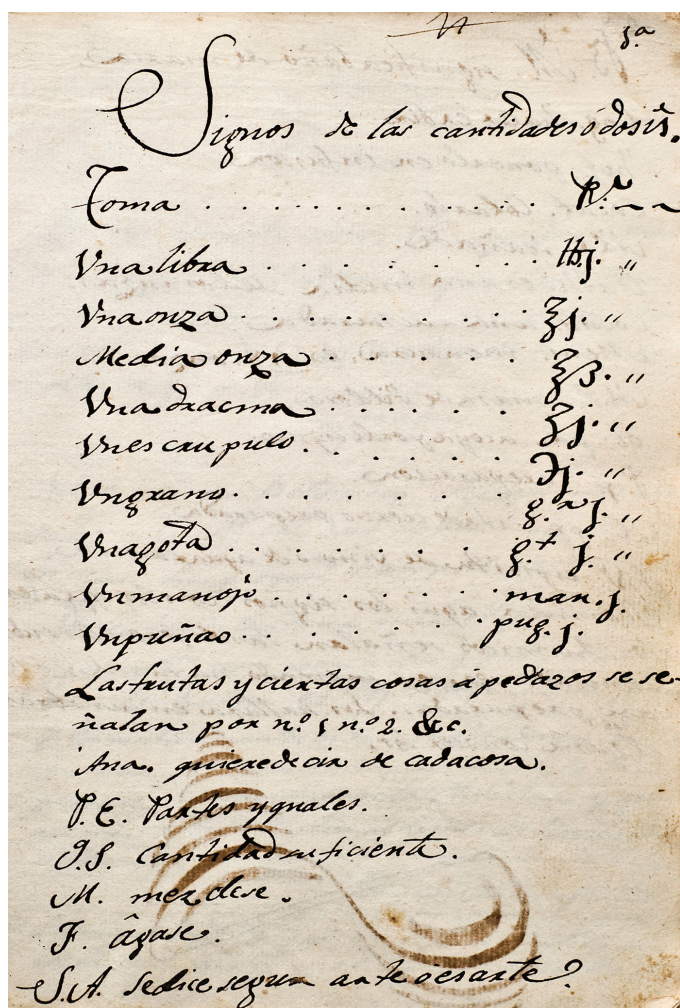 Signos de las cantidades ó dosis.
Toma . . . . . . . . . . . . . R.e
Vna libra . . . . . . . . . . . ℔j. „
Vna onza . . . . . . . . . . . ℥j. „
Media onza . . . . . . . . ℥ß. „
Vna dracma . . . . . . . ʒj. „
Vn escrupulo . . . . . . . ℈j. „
Vn grano . . . . . . . . g.n j. „
Vna gota . . . . . . . . g.t j. „
Vn manojo . . . . . . . man. j.
Vn puñao . . . . . . . pug. j.
Las frutas y ciertas cosas á pedazos se se-
ñalan por n.o 1 n.o 2. &c.
Ana. quiere decir de cada cosa.
P. E. Partes yguales.
Q. S. Cantidad suficiente.
M. mezclese.
F. âgase.
S. A. se dice segun arte